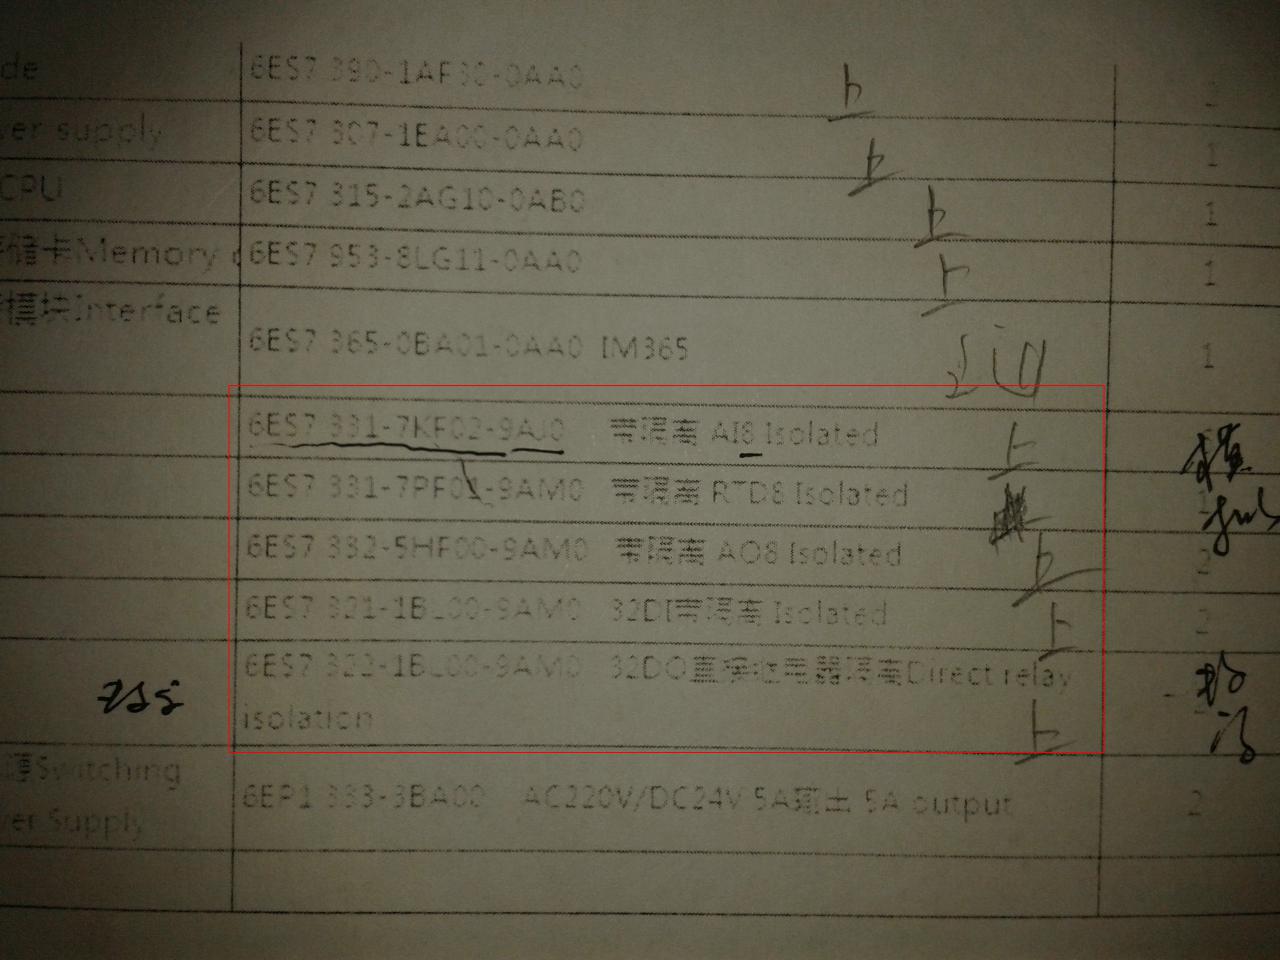 de 6ES7 390-1AF30-0AA0
ver supply 6ES7 307-1EA00-0AA0 1
CPU 6ES7 315-2AG10-0AB0 1
储卡Memory 6ES7 953-8LG11-0AA0 1
模块Interface
6ES7 365-0BA01-0AA0 IM365 1
6ES7 331-7KF02-9AJ0 带隔离 AI8 Isolated
6ES7 331-7PF01-9AM0 带隔离 RTD8 Isolated 1
6ES7 332-5HF00-9AM0 带隔离 AO8 Isolated 2
6ES7 321-1BL00-9AM0 32DI带隔离 Isolated 2
6ES7 322-1BL00-9AM0 32DO直接继电器隔离Direct relay
isolation
源Switching
ver Supply 6EP1 333-3BA00 AC220V/DC24V 5A输出 5A output 2